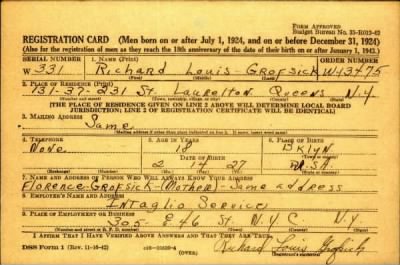 FORM APPROVED
Budget Bureau No. 33-R012-42
REGISTRATION CARD (Men born on or after July 1, 1924, and on or before December 31, 1924)
(Also for the registration of men as they reach the 18th anniversary of the date of their birth on or after January 1, 1943.)
SERIAL NUMBER 1. NAME (Print) ORDER NUMBER
W 331 Richard Louis Grofsick W13475
(First) (Middle) (Last)
2. PLACE OF RESIDENCE (Print)
137-37-231 St. Laurelton Queens N.Y.
(Number and street) (Town, township, village, or city) (County) (State)
[THE PLACE OF RESIDENCE GIVEN ON LINE 2 ABOVE WILL DETERMINE LOCAL BOARD
JURISDICTION; LINE 2 OF REGISTRATION CERTIFICATE WILL BE IDENTICAL]
3. MAILING ADDRESS
Same
[Mailing address if other than place indicated on line 2. If same, insert word same]
4. TELEPHONE 5. AGE IN YEARS 6. PLACE OF BIRTH
None 18 Bklyn
DATE OF BIRTH
2 14 27 U.S.A.
(Exchange) (Number) (Mo.) (Day) (Yr.) (State or country)
7. NAME AND ADDRESS OF PERSON WHO WILL ALWAYS KNOW YOUR ADDRESS
Florence Grofsick (Mother) - Same address
8. EMPLOYER'S NAME AND ADDRESS
Intaglio Service
9. PLACE OF EMPLOYMENT OR BUSINESS
305 - E 46 St. N.Y.C. N.Y.
(Number and street or R. F. D. number) (Town) (County) (State)
I AFFIRM THAT I HAVE VERIFIED ABOVE ANSWERS AND THAT THEY ARE TRUE.
DSS Form 1 (Rev. 11-16-42) (OVER) Richard Louis Grofsick